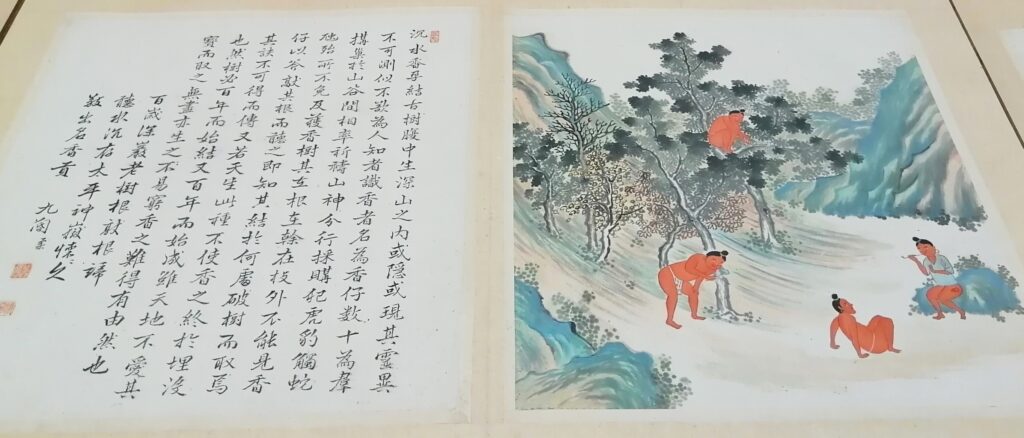 沉水香孕結古樹腹中生深山之内或隱或現其靈異
不可測似不欲為人知者識香者名為香仔數十為羣
搆巢於山谷間相率祈禱山神分行採購犯虎豹觸蛇
虺殆所不免及護香樹其在根在榦在枝外不能見香
仔以斧敲其根而聽之即知其結於何處破樹而取焉
其訣不可得而傳又若天生此種不使香之終於埋沒
也然樹必百年而始結又百年而始成雖天地不愛其
寶而取之無盡亦生之不易窮香之難得有由然也
百歲深巖老樹根敲根諦
聽水沉存太平神嶽懷久
出名香貢
九閽